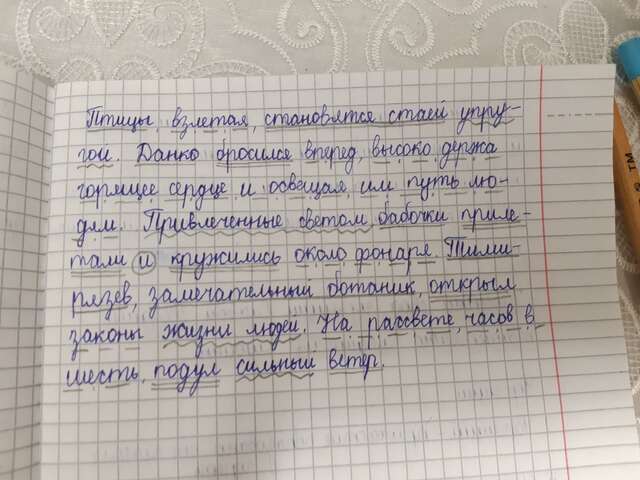 Птицы, взлетая, становятся стаей упру-
гой. Данко бросился вперед, высоко держа
горящее сердце и освещая им путь лю-
дям. Привлеченные светом бабочки приле-
тали и кружились около фонаря. Тими-
рязев, замечательный ботаник, открыл
законы жизни людей. На рассвете, часов в
шесть, подул сильный ветер.
TM